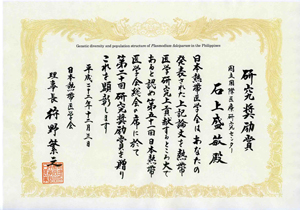 Genetic diversity and population structure of Plasmodium falciparum in the Philippines
研究奨励賞
国立国際医療研究センター
石上盛敏殿
日本熱帯医学会はあなたの
発表された上記論文を熱帯
医学研究上貢献するところ大で
あると認め第五十二回日本熱帯
医学会総会の席に於て
第二十回研究奨励賞を贈り
これを顕彰します
平成二十三年十一月三日
日本熱帯医学会
理事長 狩野繁之